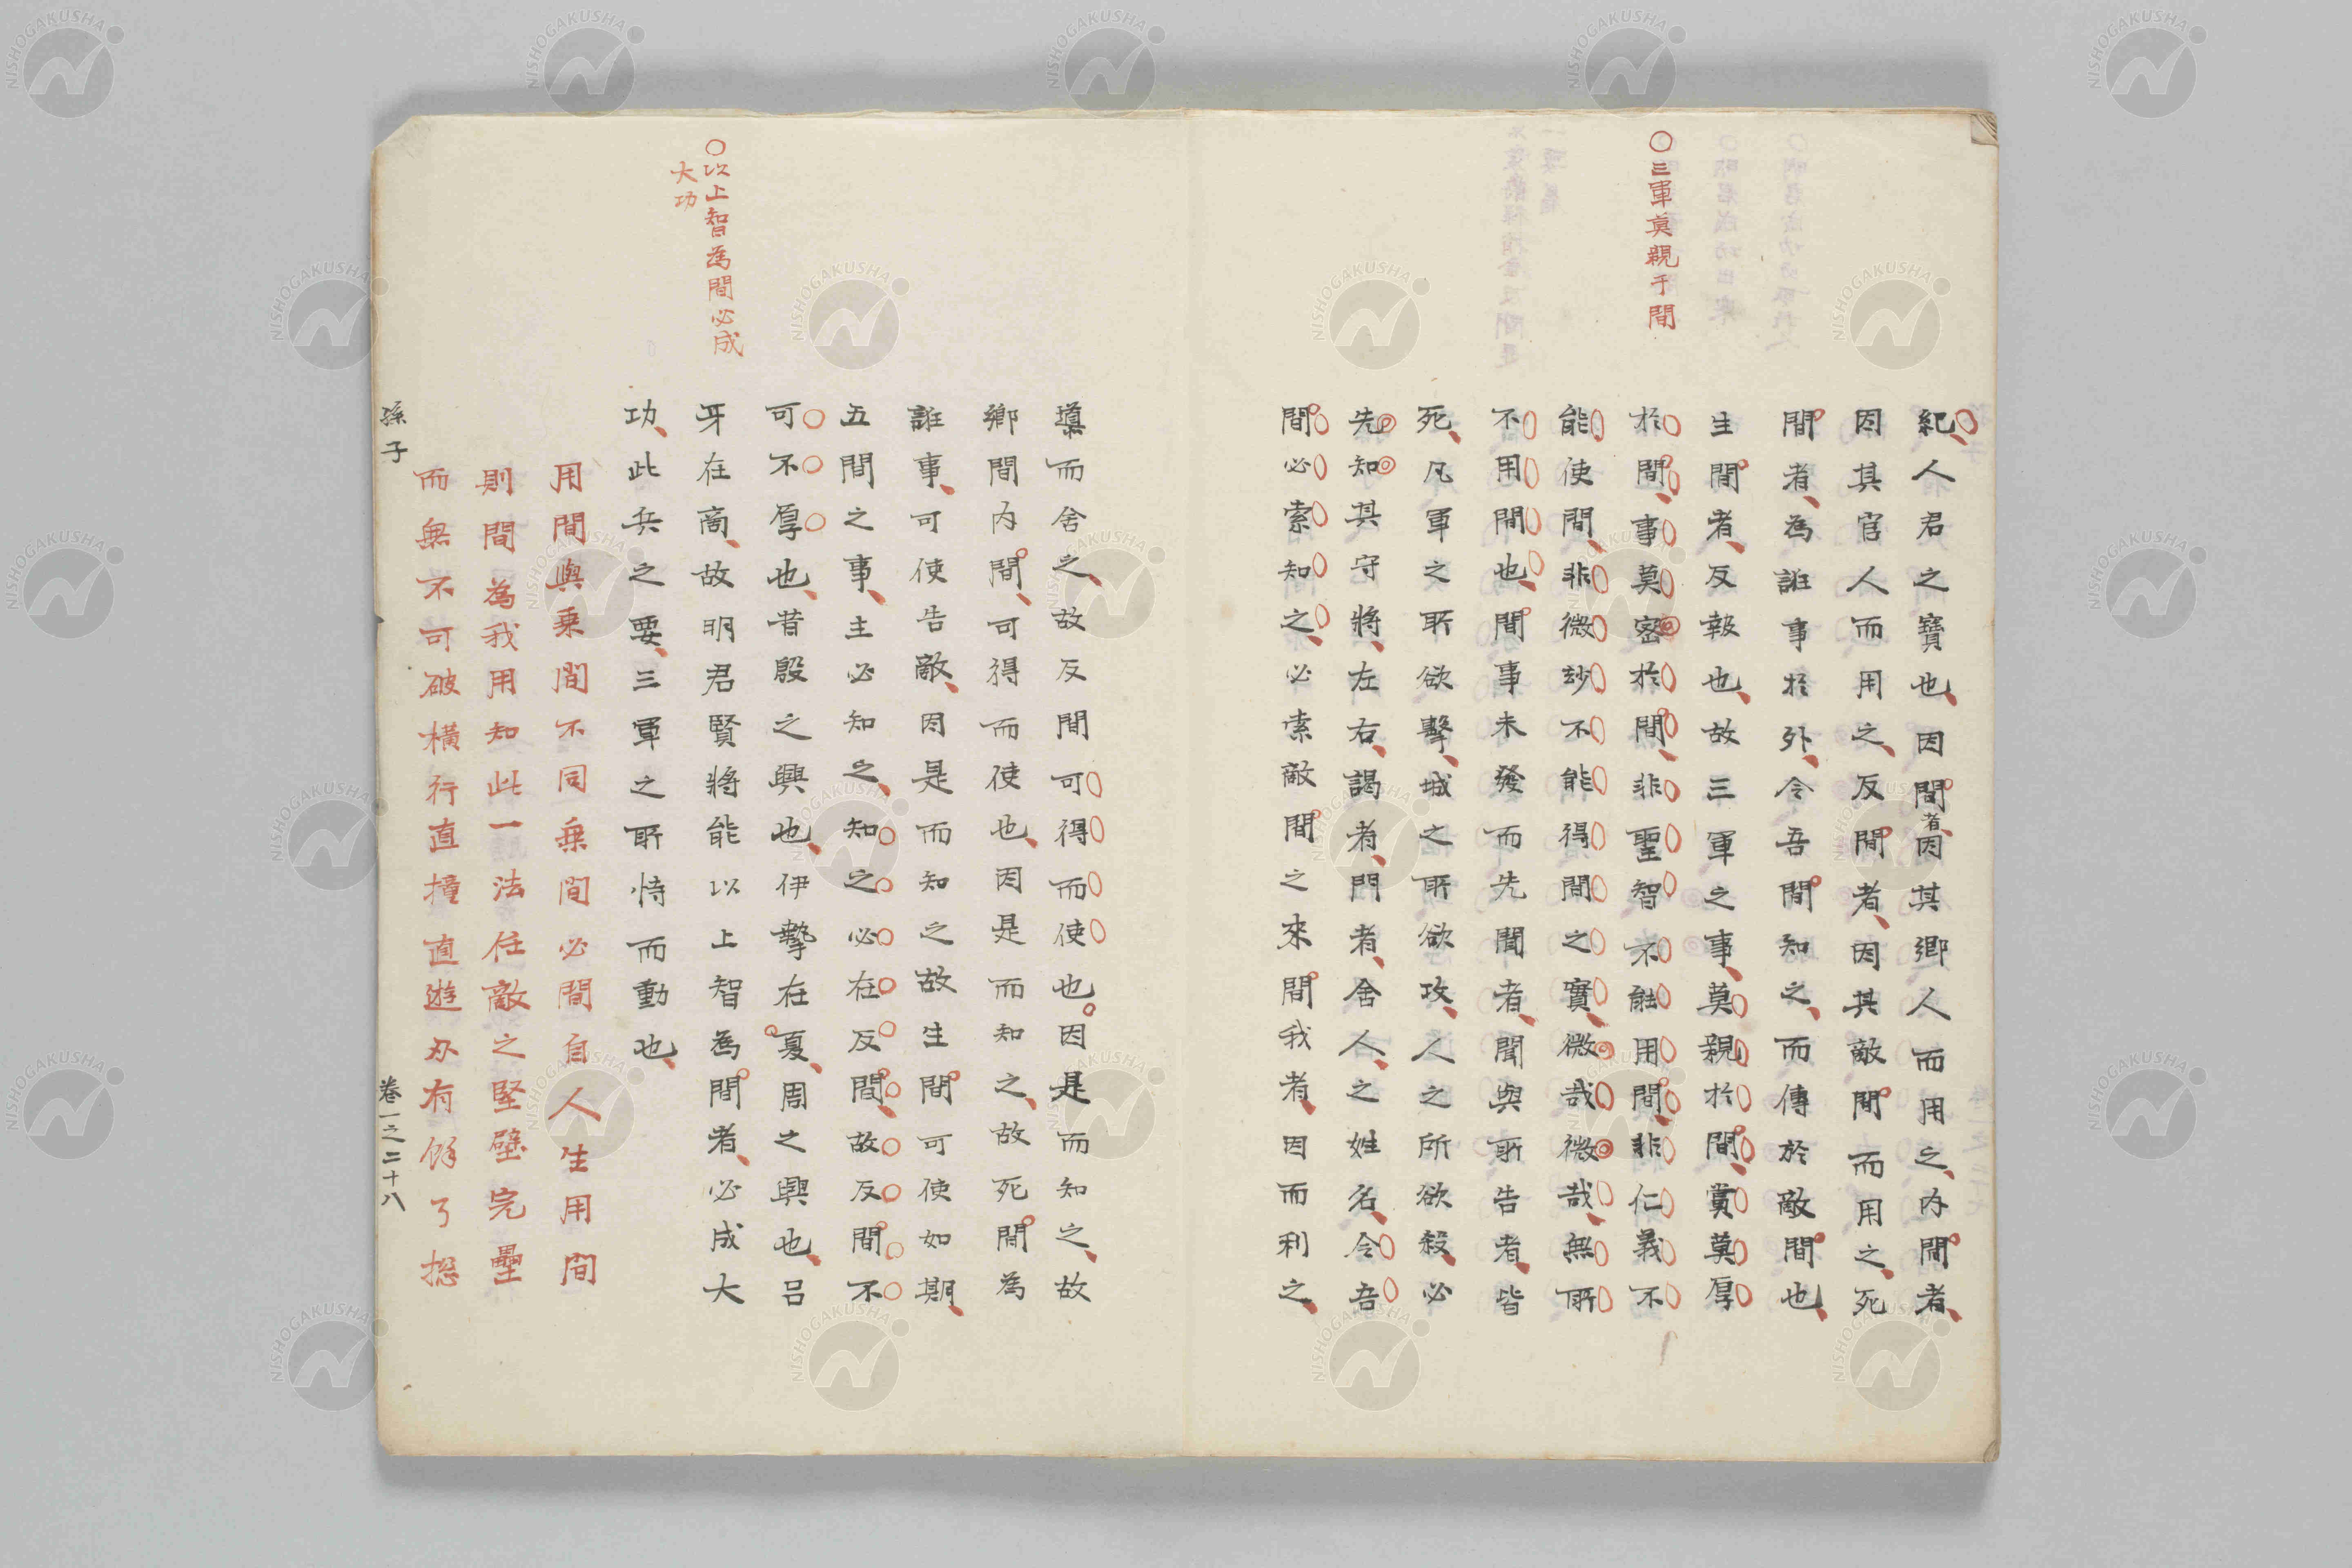 〇三軍莫親于間
紀人君之寶也因間者因其鄉人而用之内間者
因其官人而用之反間者因其敵間而用之死
間者為誑事於外令吾間知之而傳於敵間也
生間者反報也故三軍之事莫親於間賞莫厚
於間事莫密於間非聖智不能用間非仁義不
能使間非微玅不能得間之實微哉微哉無所
不用間也間事未發而先聞者聞與所告者皆
死凡軍之所欲擊城之所欲攻人之所欲殺必
先知其守將左右謁者門者舍人之姓名令吾
間必索知之必索敵間之來間我者因而利之
〇以上智為間必成
大功
導而舍之故反間可得而使也因是而知之故
鄉間内間可得而使也因是而知之故死間為
誑事可使告敵因是而知之故生間可使如期
五間之事主必知之知之必在反間故反間不
可不厚也昔殷之興也伊摯在夏周之興也呂
牙在商故明君賢將能以上智為間者必成大
功此兵之要三軍之所恃而動也
用間與乘間不同乘間必間自人生用間
則間為我用知此一法任敵之堅壁完壘
而無不可破橫行直撞直遊刃有餘了
孫子
卷一之二十八
NISHOGAKUSHA